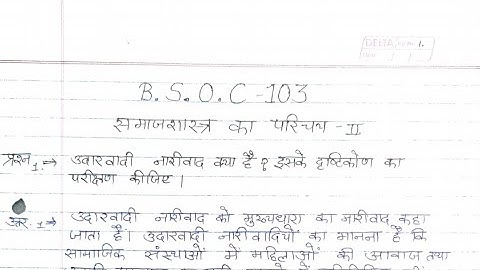 DELTA Pg No. 1.
Date / /
B.S.O.C-103
समाजशास्त्र का परिचय - II
प्रश्न 1.⇒ उदारवादी नारीवाद क्या है? इसके दृष्टिकोण का
परीक्षण कीजिए।
उत्तर. 1⇒ उदारवादी नारीवाद को मुख्यधारा का नारीवाद कहा
जाता है। उदारवादी नारीवादियों का मानना है कि
सामाजिक संस्थाओं में महिलाओं की आवाज तथा